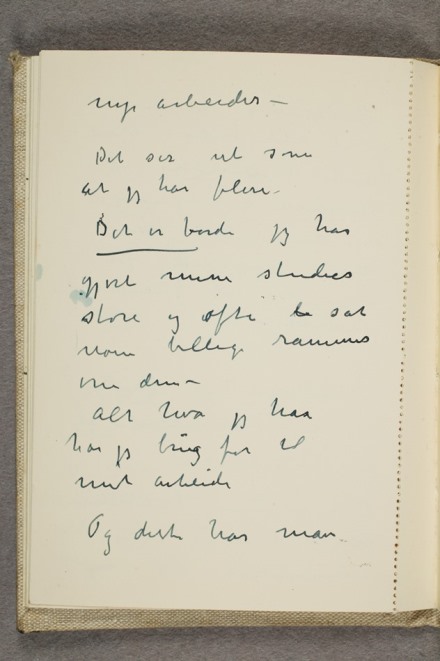 nye arbeider –
Det ser ut som
at jeg har flere.
Det er borde jeg har
gjort mine studies
store og ofte sat
noen billige rammer
om dem –
Alt hva jeg
har jeg brug for til
mit arbeide
Og dette har man